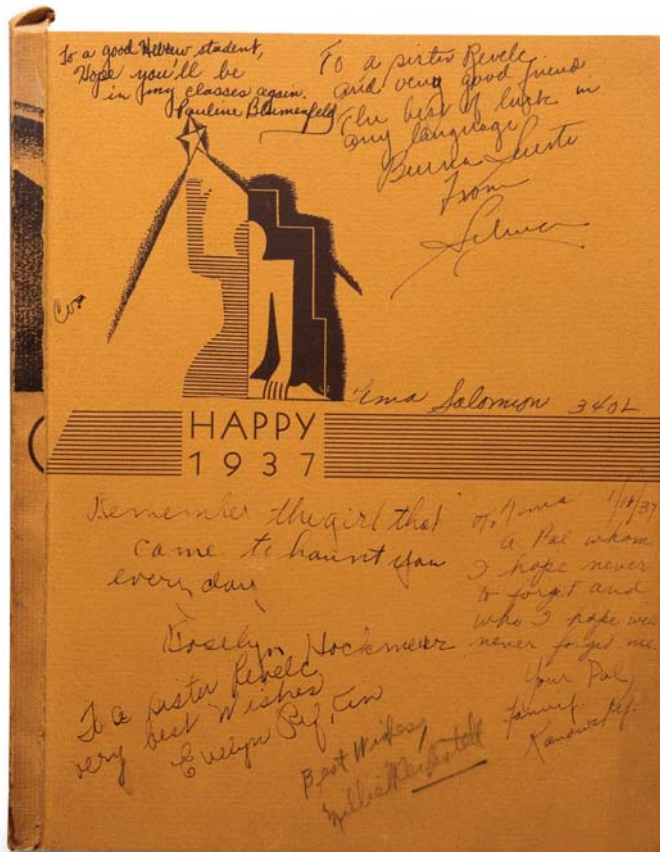 To a good Hebrew student,
Hope you'll be
in my classes again.
Pauline Blumenfeld
To a sister Revelc
and very good friend
The best of luck in
any language
Buena Suerte
From
Selma
Salomon 340L
HAPPY
1937
Remember the girl that
came to haunt you
every day
Hockmeier
To 1/18/37
a Pal whom
I hope never
to forget and
who I hope will
never forget me.
Your Pal,
To a sister Revelc
very best Wishes
Evelyn
Best Wishes,
Millie